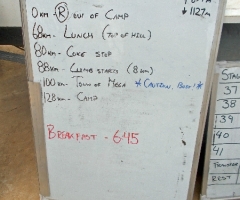 ↓1127m
0 km (R) out of Camp
68km - Lunch (Top of Hill)
80km - Coke Stop
88km - Climb starts (8km)
100km - Town of Meca * Caution, Busy! *
128km - Camp
Breakfast - 6:45
37
38
139
140
41